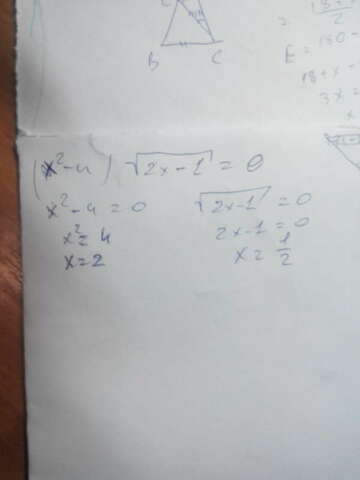 B C
18+x
2
=
E = 180 -
18+x -
3x =
(x²-4) √2x-1 = 0
x²-4 = 0 √2x-1 = 0
x² = 4 2x-1 = 0
x = 2 x = 1/2